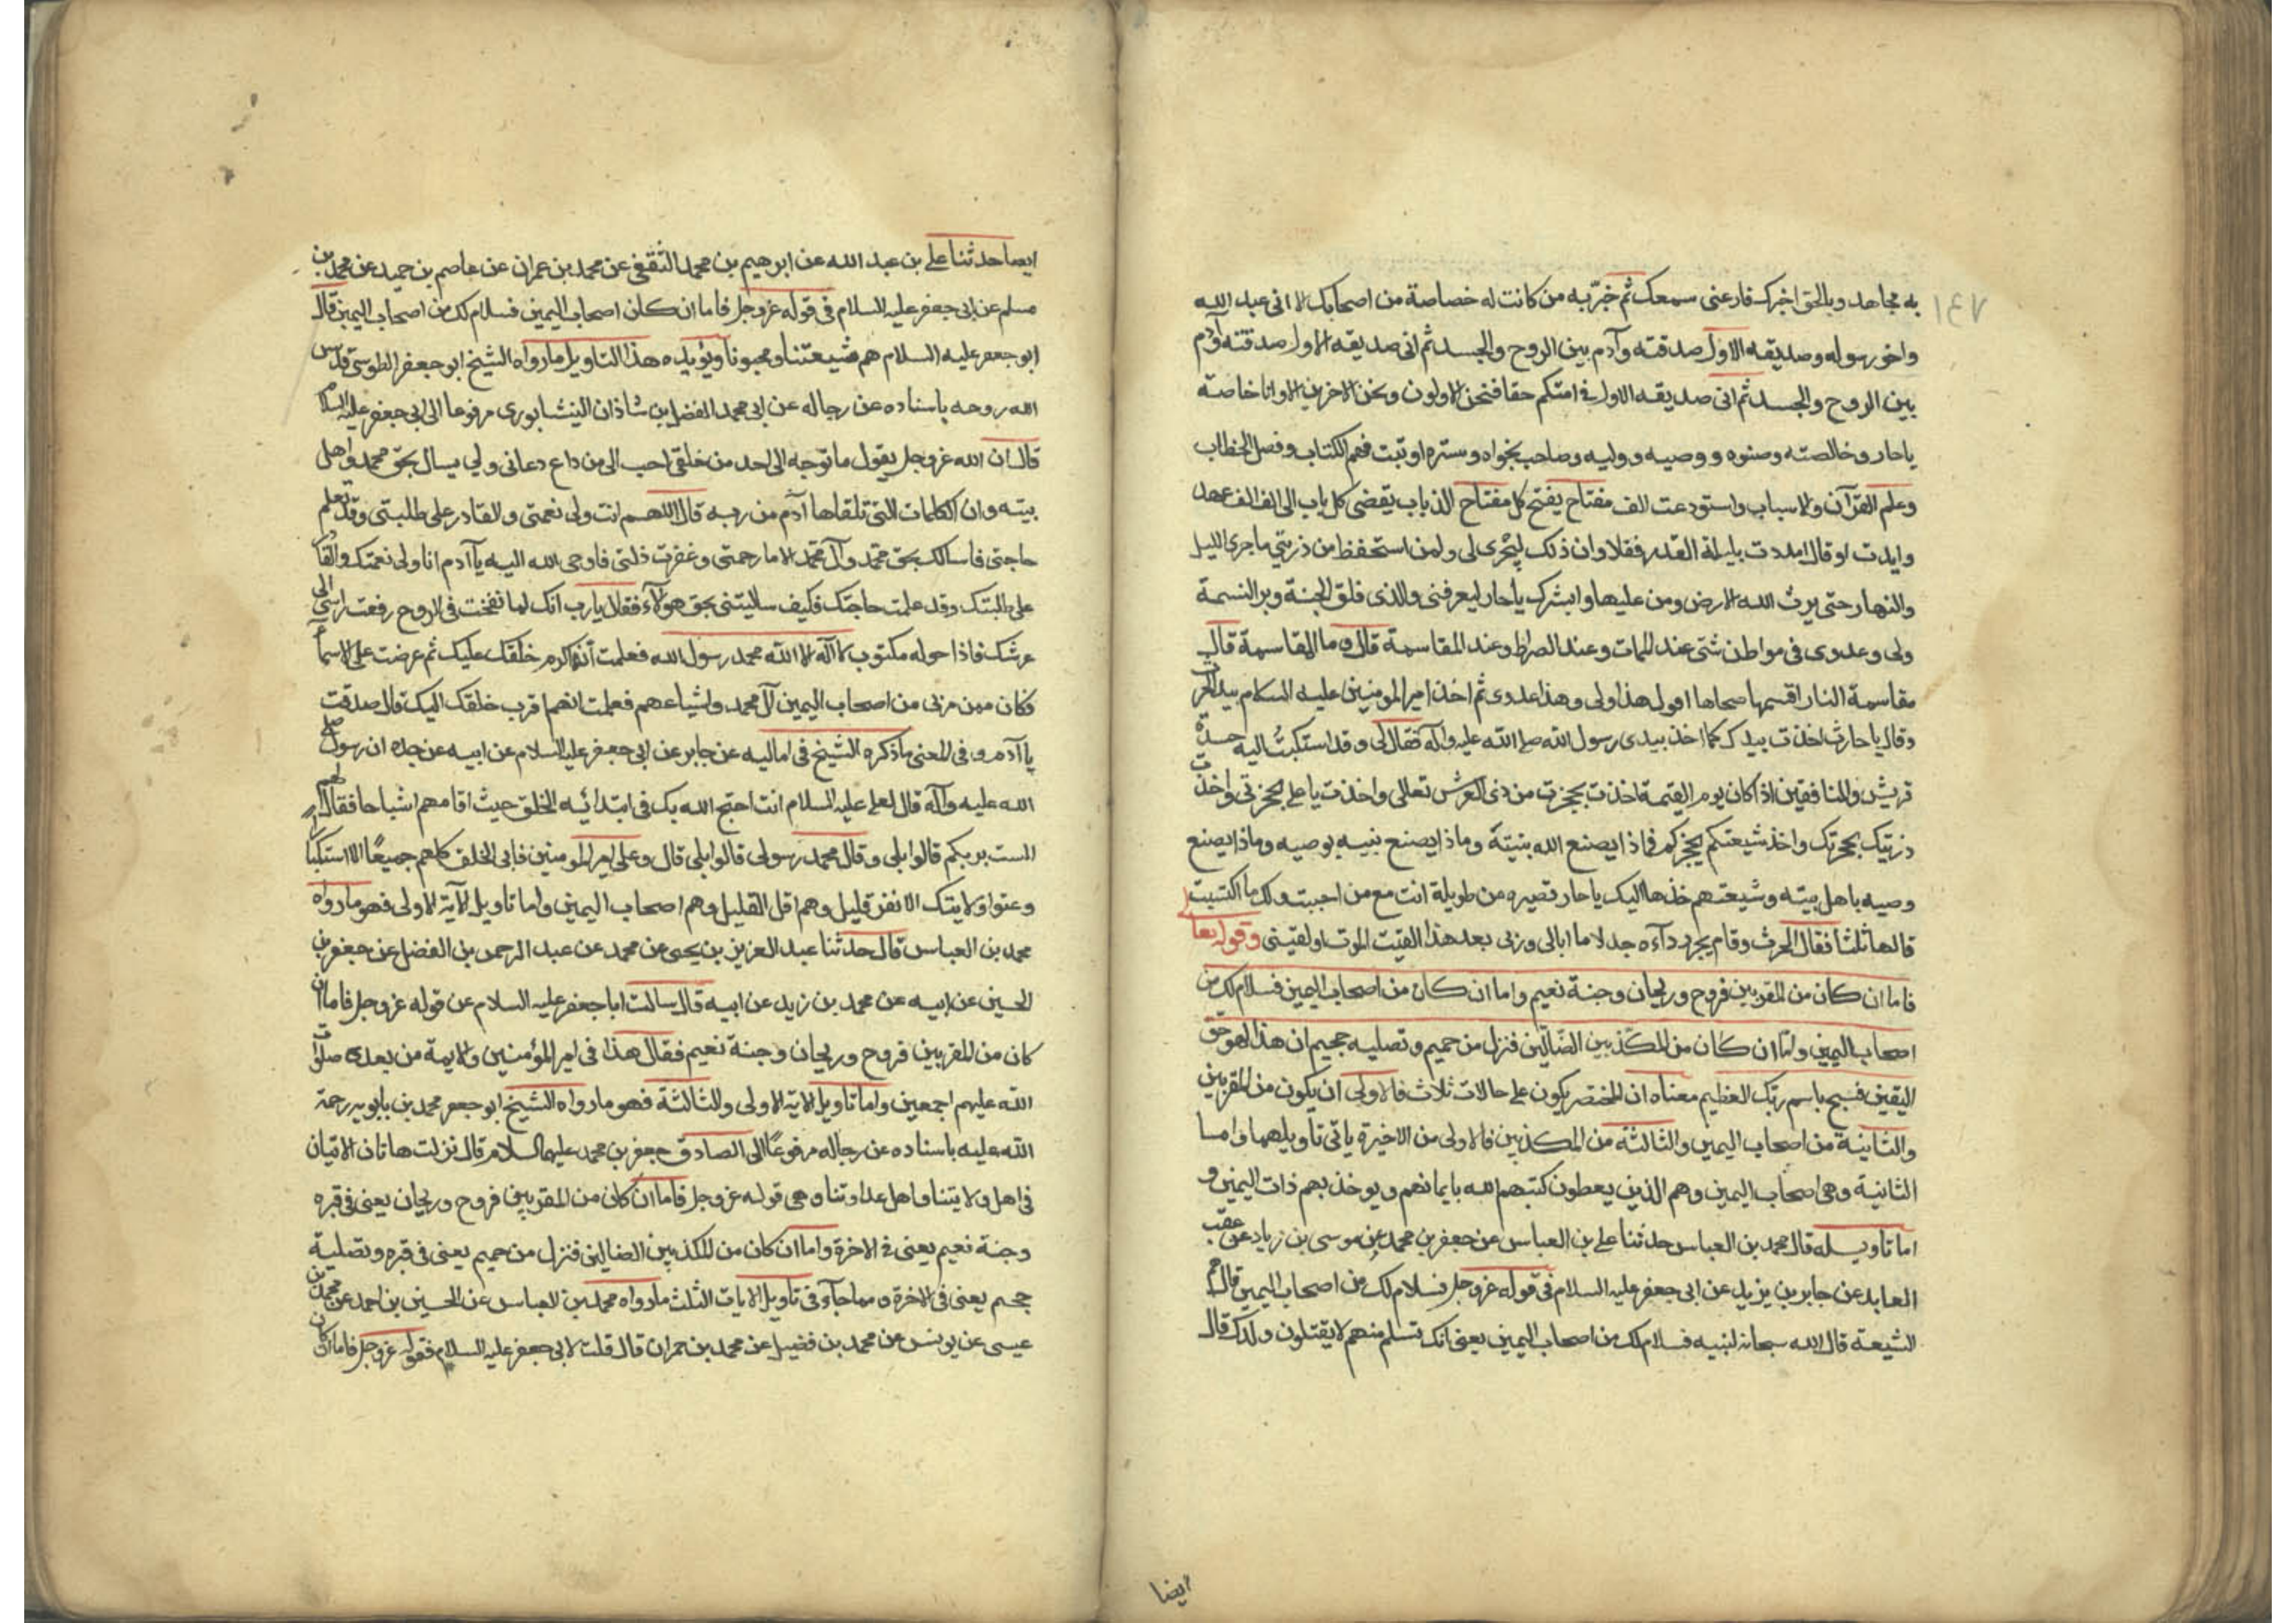 ١٤٧
به مجاهد وبالحق اخبرك فارعنى سمعك ثم خبّر به من كانت له خصاصة من اصحابك الا انى عبد الله
واخو رسوله وصديقه الاول صدقته وآدم بين الروح والجسد ثم انى صديقه الاول صدقته وآدم
بين الروح والجسد ثم انى صديقه الاول فى امتكم حقا فنحن الاولون ونحن الاخرون الا وانا خاصة
يا حار وخالصته وصنوه ووصيه ووليه وصاحب نجواه وسره اوتيت فهم الكتاب وفصل الخطاب
وعلم القرآن والاسباب واستودعت الف مفتاح يفتح كل مفتاح الف باب يقضى كل باب الى الف الف عهد
وايدت او قال امددت بليلة القدر فقلا وان ذلك ليجرى لى ولمن استحفظ من ذريتي ماجرى الليل
والنهار حتى يرث الله الارض ومن عليها وابشرك يا حار ليعرفنى والذى فلق الحبة وبر النسمة
ولى وعدوى فى مواطن شتى عند الممات وعند الصراط وعند المقاسمة قال وما المقاسمة قال
مقاسمة النار اقسمها صحاحا اقول هذا ولى وهذا عدوى ثم اخذ امير المومنين عليه السلام بيد الحرث
وقال يا حارث اخذت بيدك كما اخذ بيدى رسول الله صلى الله عليه وآله فقال لى وقد استكبت اليه حسدة
قريش والمنافقين اذا كان يوم القيمة اخذت بحجزت من ذى العرش تعالى واخذت يا على بحجزتى واخذت
ذريتك بحجزتك واخذ شيعتكم بحجزكم فماذا يصنع الله بنبيّه وماذا يصنع نبيه بوصيه وماذا يصنع
وصيه باهل بيته وشيعتهم خذها اليك يا حار قصيره من طويلة انت مع من احببت ولك ما اكتسبت
قالها ثلثا فقال الحرث وقام يجر رداءه جدلا ما ابالى وربى بعد هذا القيت الموت او لقينى وقوله تعالى
فاما ان كان من المقربين فروح وريحان وجنة نعيم واما ان كان من اصحاب اليمين فسلام لك من
اصحاب اليمين واما ان كان من المكذبين الضالين فنزل من حميم وتصليه جحيم ان هذا لهو حق
اليقين فسبح باسم ربك العظيم معناه ان المختصر يكون على حالات ثلاث فالاولى ان يكون من المقربين
والثانية من اصحاب اليمين والثالثة من المكذبين فالاولى من الاخيرة ياتى تاويلهما واما
الثانية وهى اصحاب اليمين وهم الذين يعطون كتبهم الله بايمانهم ويوخذ بهم ذات اليمين و
اما تاويله قال محمد بن العباس حدثنا على بن العباس عن جعفر بن محمد عن موسى بن زياد عن عقب
العابد عن جابر بن يزيد عن ابى جعفر عليه السلام فى قوله عز وجل فسلام لك من اصحاب اليمين قال هم
الشيعة قال الله سبحانه لنبيه فسلام لك من اصحاب اليمين يعنى انك تسلم منهم لا يقتلون ولدك قال
ايضا
ايضا حدثنا على بن عبد الله عن ابرهيم بن محمد الثقفى عن محمد بن عمران عن عاصم بن حميد عن محمد بن
مسلم عن ابى جعفر عليه السلام فى قوله عز وجل فاما ان كان اصحاب اليمين فسلام لك من اصحاب اليمين قال
ابو جعفر عليه السلام هم شيعتنا ومحبونا ويؤيده هذا التاويل ما رواه الشيخ ابو جعفر الطوسى قدس
الله روحه باسناده عن رجاله عن ابى محمد الفضل بن شاذان النيشابورى مرفوعا الى ابى جعفر عليه السلام
قال ان الله عز وجل يقول ما توجه الى احد من خلقى احب الى من داع دعانى ولى يسال بحق محمد واهل
بيته وان الكلمات التى تلقاها آدم من ربه قال اللهم انت ولى نعمتى والقادر على طلبتى وقد تعلم
حاجتى فاسالك بحق محمد وآل محمد الا ما رحمتى وغفرت ذلتى فاوحى الله اليه يا آدم انا ولى نعمتك والقادر
على طلبتك وقد علمت حاجتك فكيف سالتنى بحق هولآء فقال يا رب انك لما نفخت فى الروح رفعت راسى الى
عرشك فاذا حوله مكتوب لا اله الا الله محمد رسول الله فعلمت انه اكرم خلقك عليك ثم عرضت على الاسمآء
فكان ممن مر بى من اصحاب اليمين آل محمد واشياعهم فعلمت انهم اقرب خلقك اليك قال صدقت
يا آدم وفى المعنى ما ذكره الشيخ فى اماليه عن جابر عن ابى جعفر عليه السلام عن ابيه عن جده ان رسول الله صلى
الله عليه وآله قال لعلى عليه السلام انت احتج الله بك فى ابتدائه الخلق حيث اقامهم اشباحا فقال لهم
الست بربكم قالوا بلى وقال محمد رسولى قالوا بلى قال وعلى امير المومنين فابى الخلق كلهم جميعًا الا استكبارا
وعتوا ولايتك الا نفر قليل وهم اقل القليل وهم اصحاب اليمين واما تاويل الآية الاولى فهو ما رواه
محمد بن العباس قال حدثنا عبد العزيز بن يحيى عن محمد عن عبد الرحمن بن الفضل عن جعفر بن
الحسين عن ابيه عن محمد بن زيد عن ابيه قال سالت ابا جعفر عليه السلام عن قوله عز وجل فاما ان
كان من المقربين فروح وريحان وجنة نعيم فقال هذا فى امير المؤمنين والايمة من بعده صلوات
الله عليهم اجمعين واما تاويل الاية الاولى والثالثة فهو ما رواه الشيخ ابو جعفر محمد بن بابويه رحمة
الله عليه باسناده عن رجاله مرفوعًا الى الصادق جعفر بن محمد عليهما السلام قال نزلت هاتان الايتان
فى اهل ولايتنا واهل عداوتنا وهى قوله عز وجل فاما ان كان من المقربين فروح وريحان يعنى فى قبره
وجنة نعيم يعنى فى الاخرة واما ان كان من المكذبين الضالين فنزل من حميم يعنى فى قبره وتصلية
جحيم يعنى فى الاخرة ومما جآء فى تاويل الايات الثلث ما رواه محمد بن العباس عن الحسين بن احمد عن محمد بن
عيسى عن يونس عن محمد بن فضيل عن محمد بن حمران قال قلت لابى جعفر عليه السلام فقوله عز وجل فاما ان كان